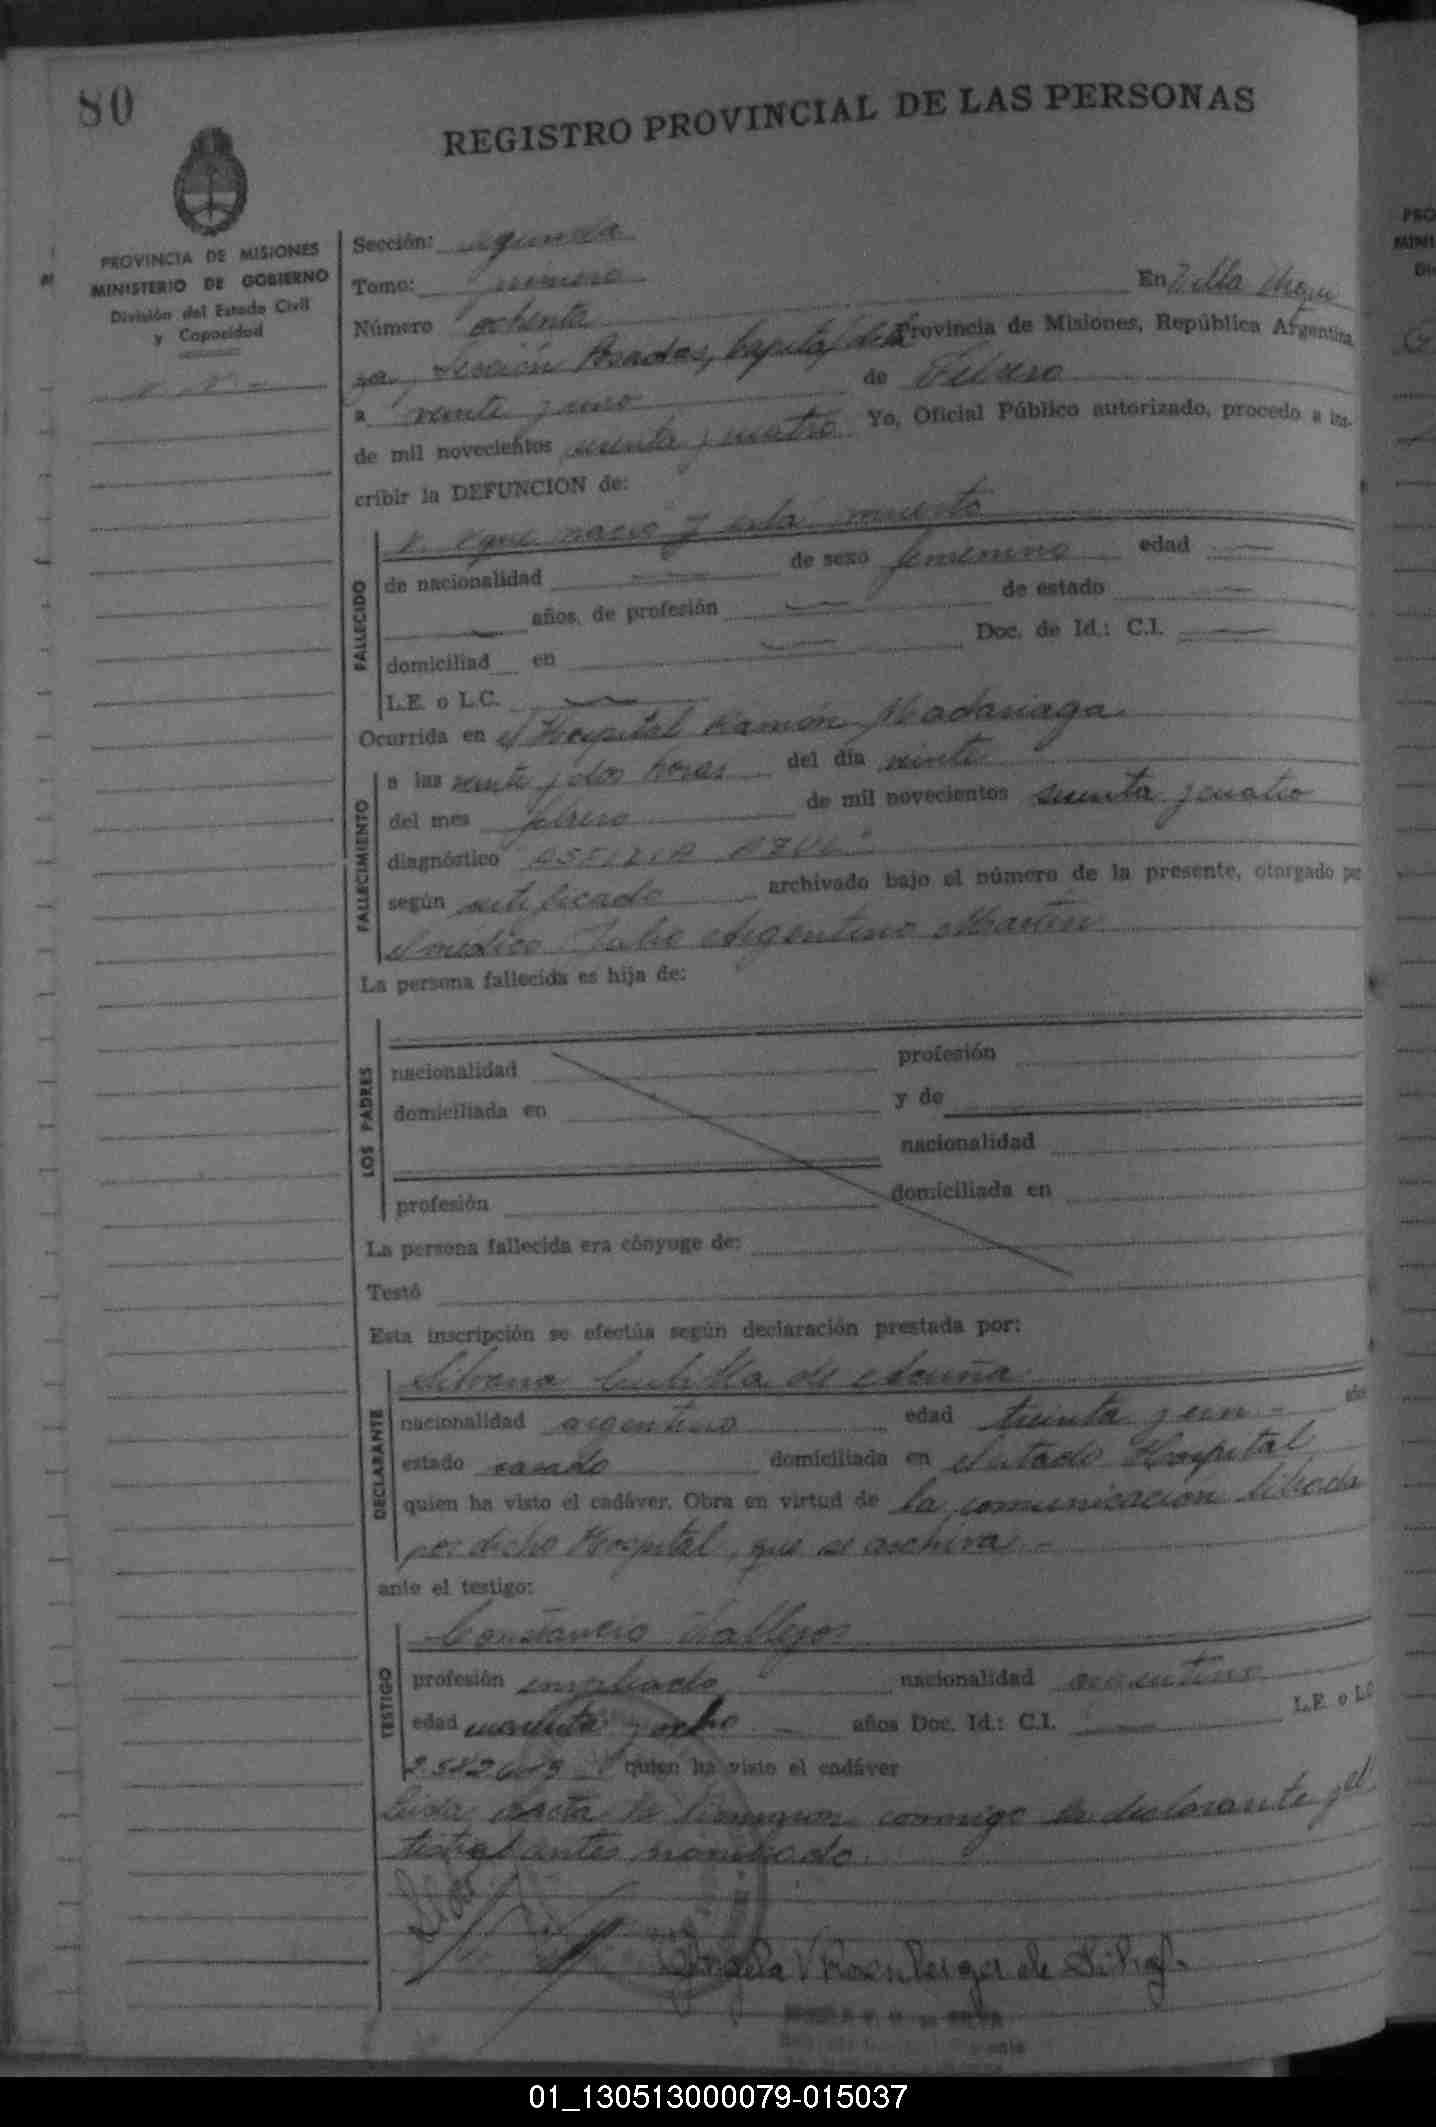 80
REGISTRO PROVINCIAL DE LAS PERSONAS
PROVINCIA DE MISIONES
MINISTERIO DE GOBIERNO
División del Estado Civil
y Capacidad
Sección: segunda
Tomo: primero
En Villa Urqui
Número ochenta
za, Sección Posadas, Capital de la Provincia de Misiones, República Argentina,
a veinte y uno de Febrero
de mil novecientos sesenta y cuatro Yo, Oficial Público autorizado, procedo a ins-
cribir la DEFUNCION de:
FALLECIDO
que nació y está muerto
de nacionalidad de sexo femenino edad
años, de profesión de estado
domiciliad en Doc. de Id.: C.I.
L.E. o L.C.
Ocurrida en el Hospital Ramón Madariaga
FALLECIMIENTO
a las veinte y dos horas del día veinte
del mes febrero de mil novecientos sesenta y cuatro
diagnóstico ASFIXIA AZUL
según certificado archivado bajo el número de la presente, otorgado por
el médico Julio Argentino Martin
La persona fallecida es hija de:
LOS PADRES
nacionalidad profesión
domiciliada en y de
nacionalidad
profesión domiciliada en
La persona fallecida era cónyuge de:
Testó
Esta inscripción se efectúa según declaración prestada por:
DECLARANTE
de Acuña
nacionalidad argentino edad treinta y un años
estado casado domiciliada en el citado Hospital
quien ha visto el cadáver. Obra en virtud de la comunicación librada
por dicho Hospital, que se archiva
ante el testigo:
TESTIGO
Constancio Vallejos
profesión empleado nacionalidad argentino
edad cuarenta y ocho años Doc. Id.: C.I. L.E. o L.C
quien ha visto el cadáver
Leida el acta la firmaron conmigo la declarante y el
testigo antes nombrado.
Angela V de Silva
01_130513000079-015037